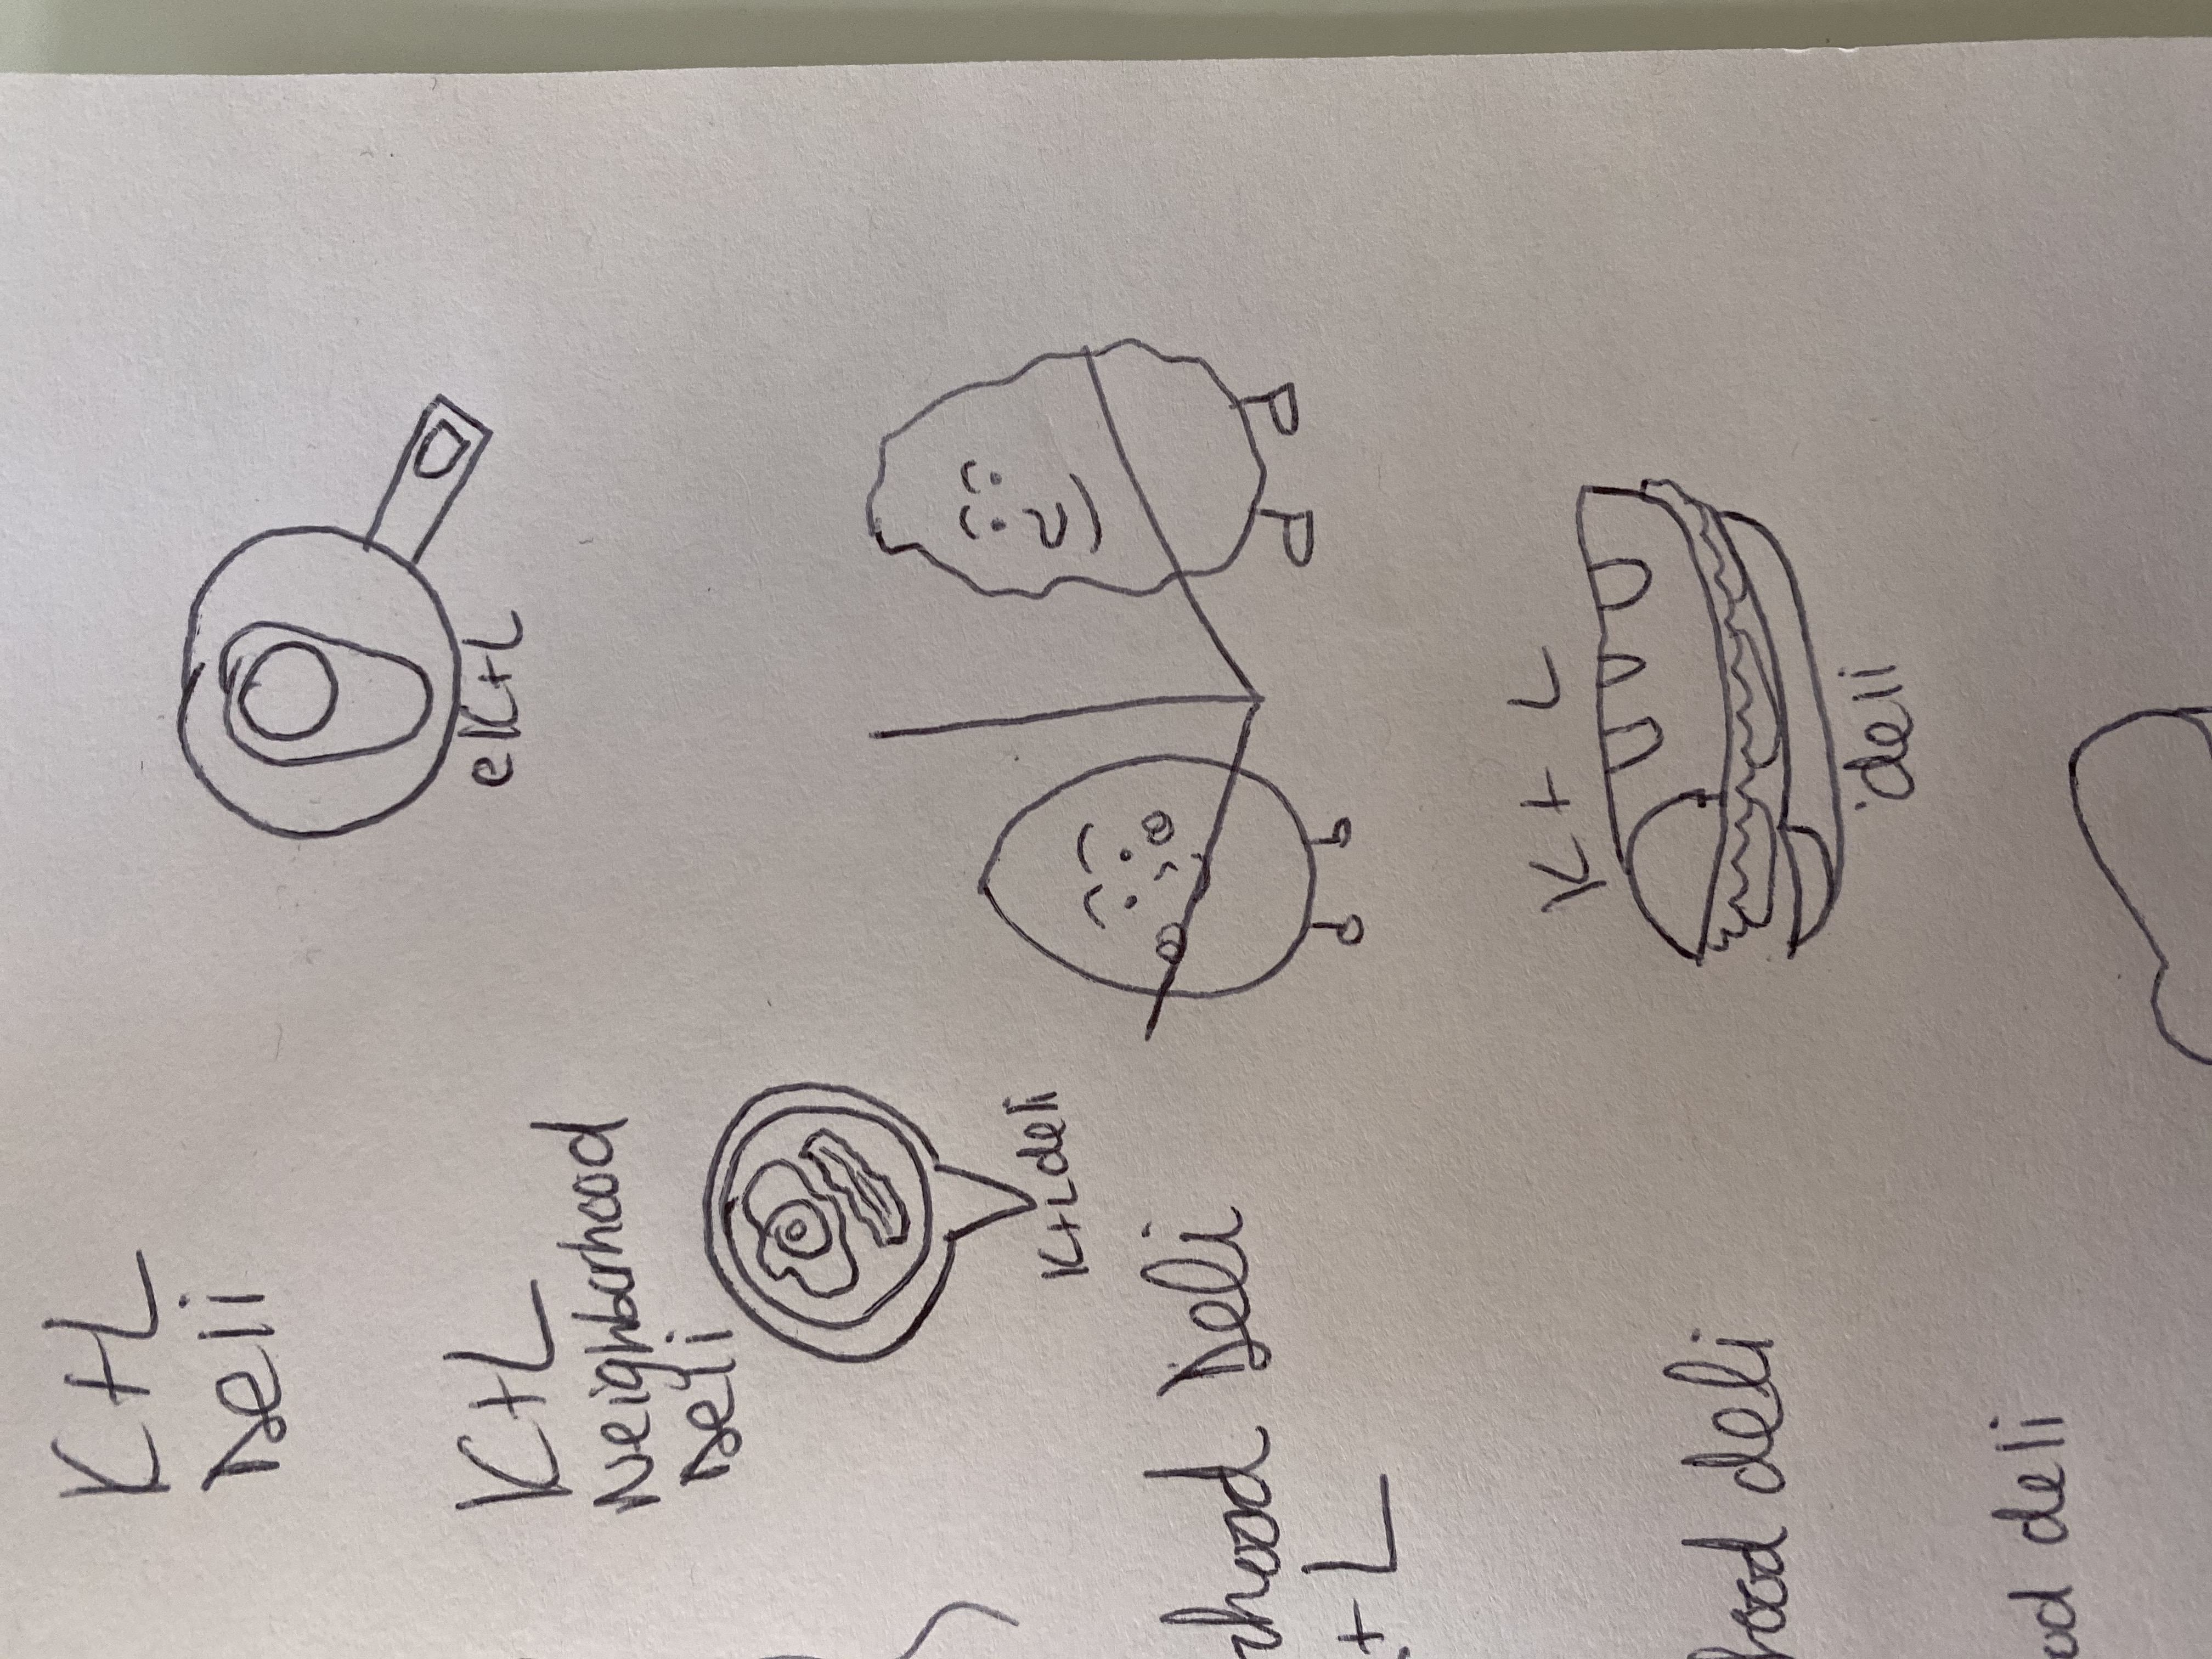 K+L
Deli
eK+L
K+L
Neighborhood
Deli
K+L deli
rhood Deli
+ L
K + L
hood deli
deli
od deli